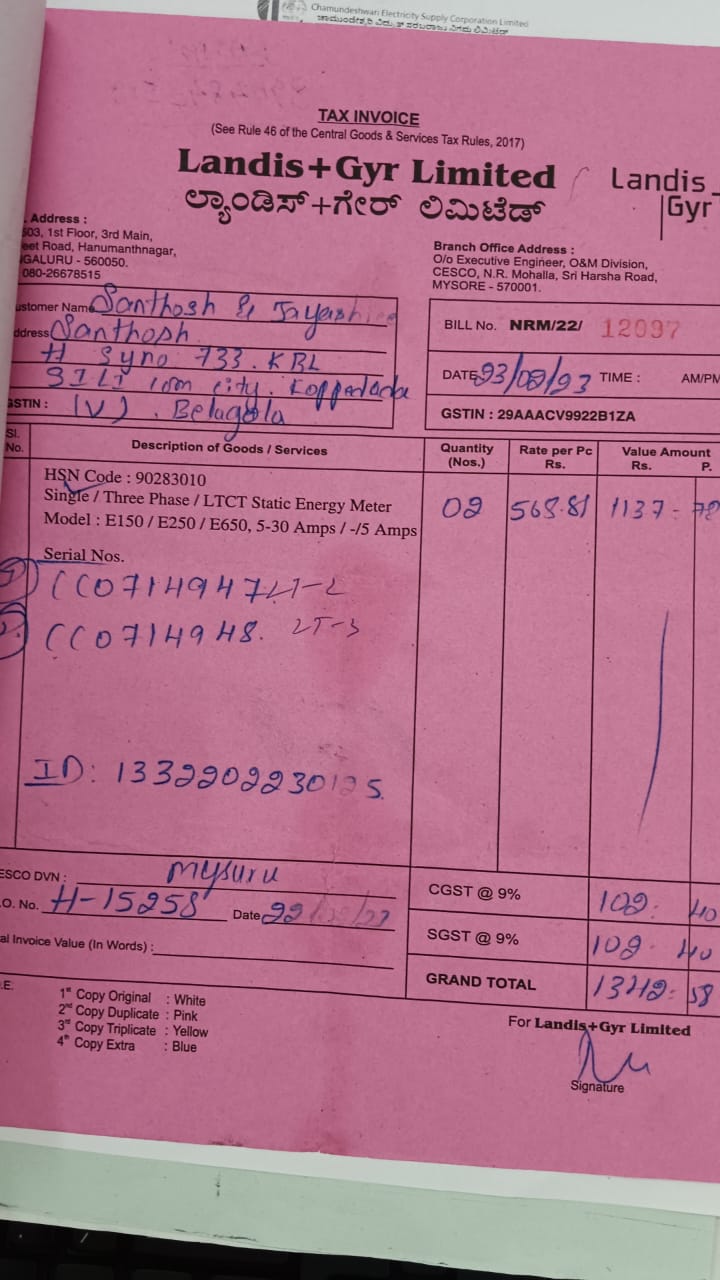 Chamundeshwari Electricity Supply Corporation Limited
TAX INVOICE
(See Rule 46 of the Central Goods & Services Tax Rules, 2017)
Landis+Gyr Limited
Landis
Gyr
ಲ್ಯಾಂಡಿಸ್+ಗೇರ್ ಲಿಮಿಟೆಡ್
. Address :
503, 1st Floor, 3rd Main,
eet Road, Hanumanthnagar,
GALURU - 560050.
080-26678515
Branch Office Address :
O/o Executive Engineer, O&M Division,
CESCO, N.R. Mohalla, Sri Harsha Road,
MYSORE - 570001.
ustomer Name Santhosh & Jayashree
ddress Santhosh
H Syno 733. KBL
com city.
GSTIN : (V). Belagola
BILL No. NRM/22/ 12097
DATE TIME : AM/PM
GSTIN : 29AAACV9922B1ZA
Sl. No. Description of Goods / Services Quantity (Nos.) Rate per Pc Rs. Value Amount Rs. P.
HSN Code : 90283010
Single / Three Phase / LTCT Static Energy Meter 02 568.81 1137 - 78
Model : E150 / E250 / E650, 5-30 Amps / -/5 Amps
Serial Nos.
1) CC0714947 LT-2
2) CC0714948. LT-3
ID: 1332202230125
ESCO DVN : Mysuru
.O. No. H-15258 Date
al Invoice Value (In Words) :
CGST @ 9% 102. 40
SGST @ 9% 102. 40
GRAND TOTAL 1342. 58
.E:
1st Copy Original : White
2nd Copy Duplicate : Pink
3rd Copy Triplicate : Yellow
4th Copy Extra : Blue
For Landis+Gyr Limited
Signature